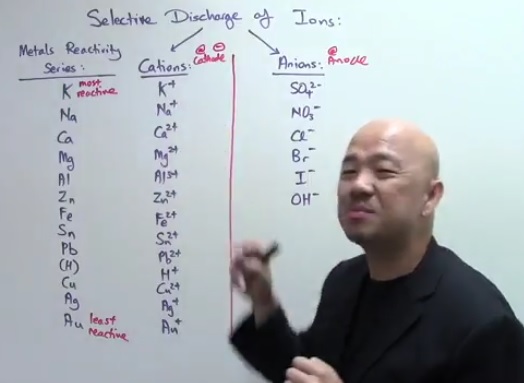 Selective Discharge of Ions:
Metals Reactivity Series:
K most reactive
Na
Ca
Mg
Al
Zn
Fe
Sn
Pb
(H)
Cu
Ag
Au least reactive
Cations: @ ⊖ Cathode
K⁺
Na⁺
Ca²⁺
Mg²⁺
Al³⁺
Zn²⁺
Fe²⁺
Sn²⁺
Pb²⁺
H⁺
Cu²⁺
Ag⁺
Au⁺
Anions: @ Anode
SO₄²⁻
NO₃⁻
Cl⁻
Br⁻
I⁻
OH⁻